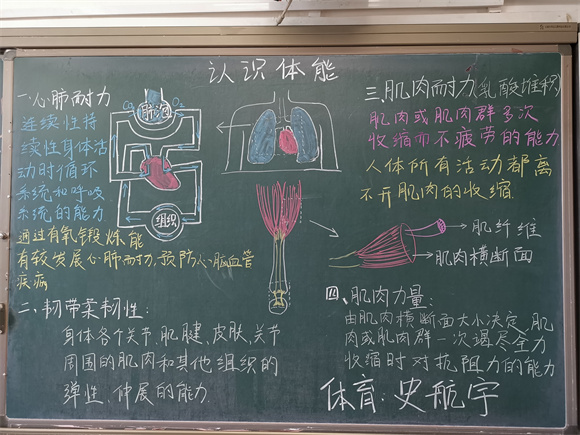 认识体能
一.心肺耐力
连续性持
续性身体活
动时循环
系统和呼吸
系统的能力
通过有氧锻炼能
有较发展心肺耐力,预防心脑血管
疾病
CO₂
肺泡
O₂
组织
二、韧带柔韧性:
身体各个关节、肌腱、皮肤、关节
周围的肌肉和其他组织的
弹性、伸展的能力.
三.肌肉耐力(乳酸堆积)
肌肉或肌肉群多次
收缩而不疲劳的能力
人体所有活动都离
不开肌肉的收缩.
肌纤维
肌肉横断面
四、肌肉力量:
由肌肉横断面大小决定,肌
肉或肌肉群一次竭尽全力
收缩时对抗阻力的能力
体育:史航宇